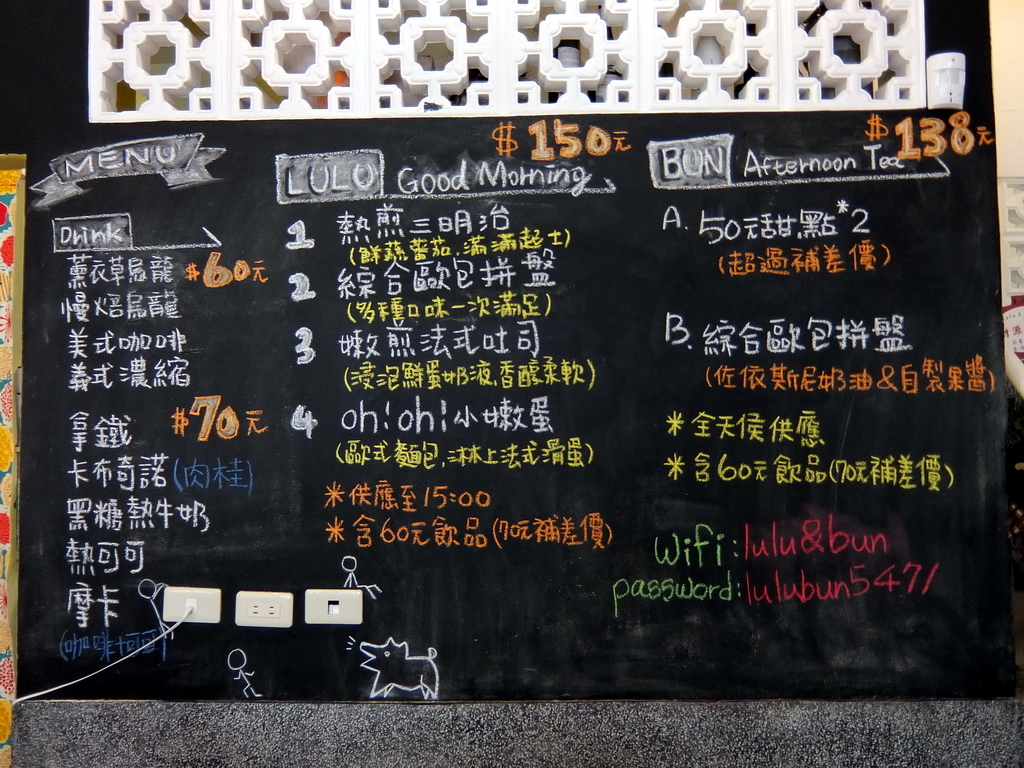 MENU
Drink
薰衣草烏龍 $60元
慢焙烏龍
美式咖啡
義式濃縮
拿鐵 $70元
卡布奇諾(肉桂)
黑糖熱牛奶
熱可可
摩卡
(咖啡+可可)
LULO Good Morning $150元
1 熱煎三明治
(鮮蔬蕃茄,滿滿起士)
2 綜合歐包拼盤
(多種口味一次滿足)
3 嫩煎法式吐司
(浸泡鮮蛋奶液,香醇柔軟)
4 oh!oh!小嫩蛋
(歐式麵包,淋上法式滑蛋)
*供應至15:00
*含60元飲品(70元補差價)
BUN Afternoon Tea $138元
A. 50元甜點*2
(超過補差價)
B. 綜合歐包拼盤
(佐依斯尼奶油&自製果醬)
*全天侯供應
*含60元飲品(70元補差價)
wifi:lulu&bun
password:lulubun5471